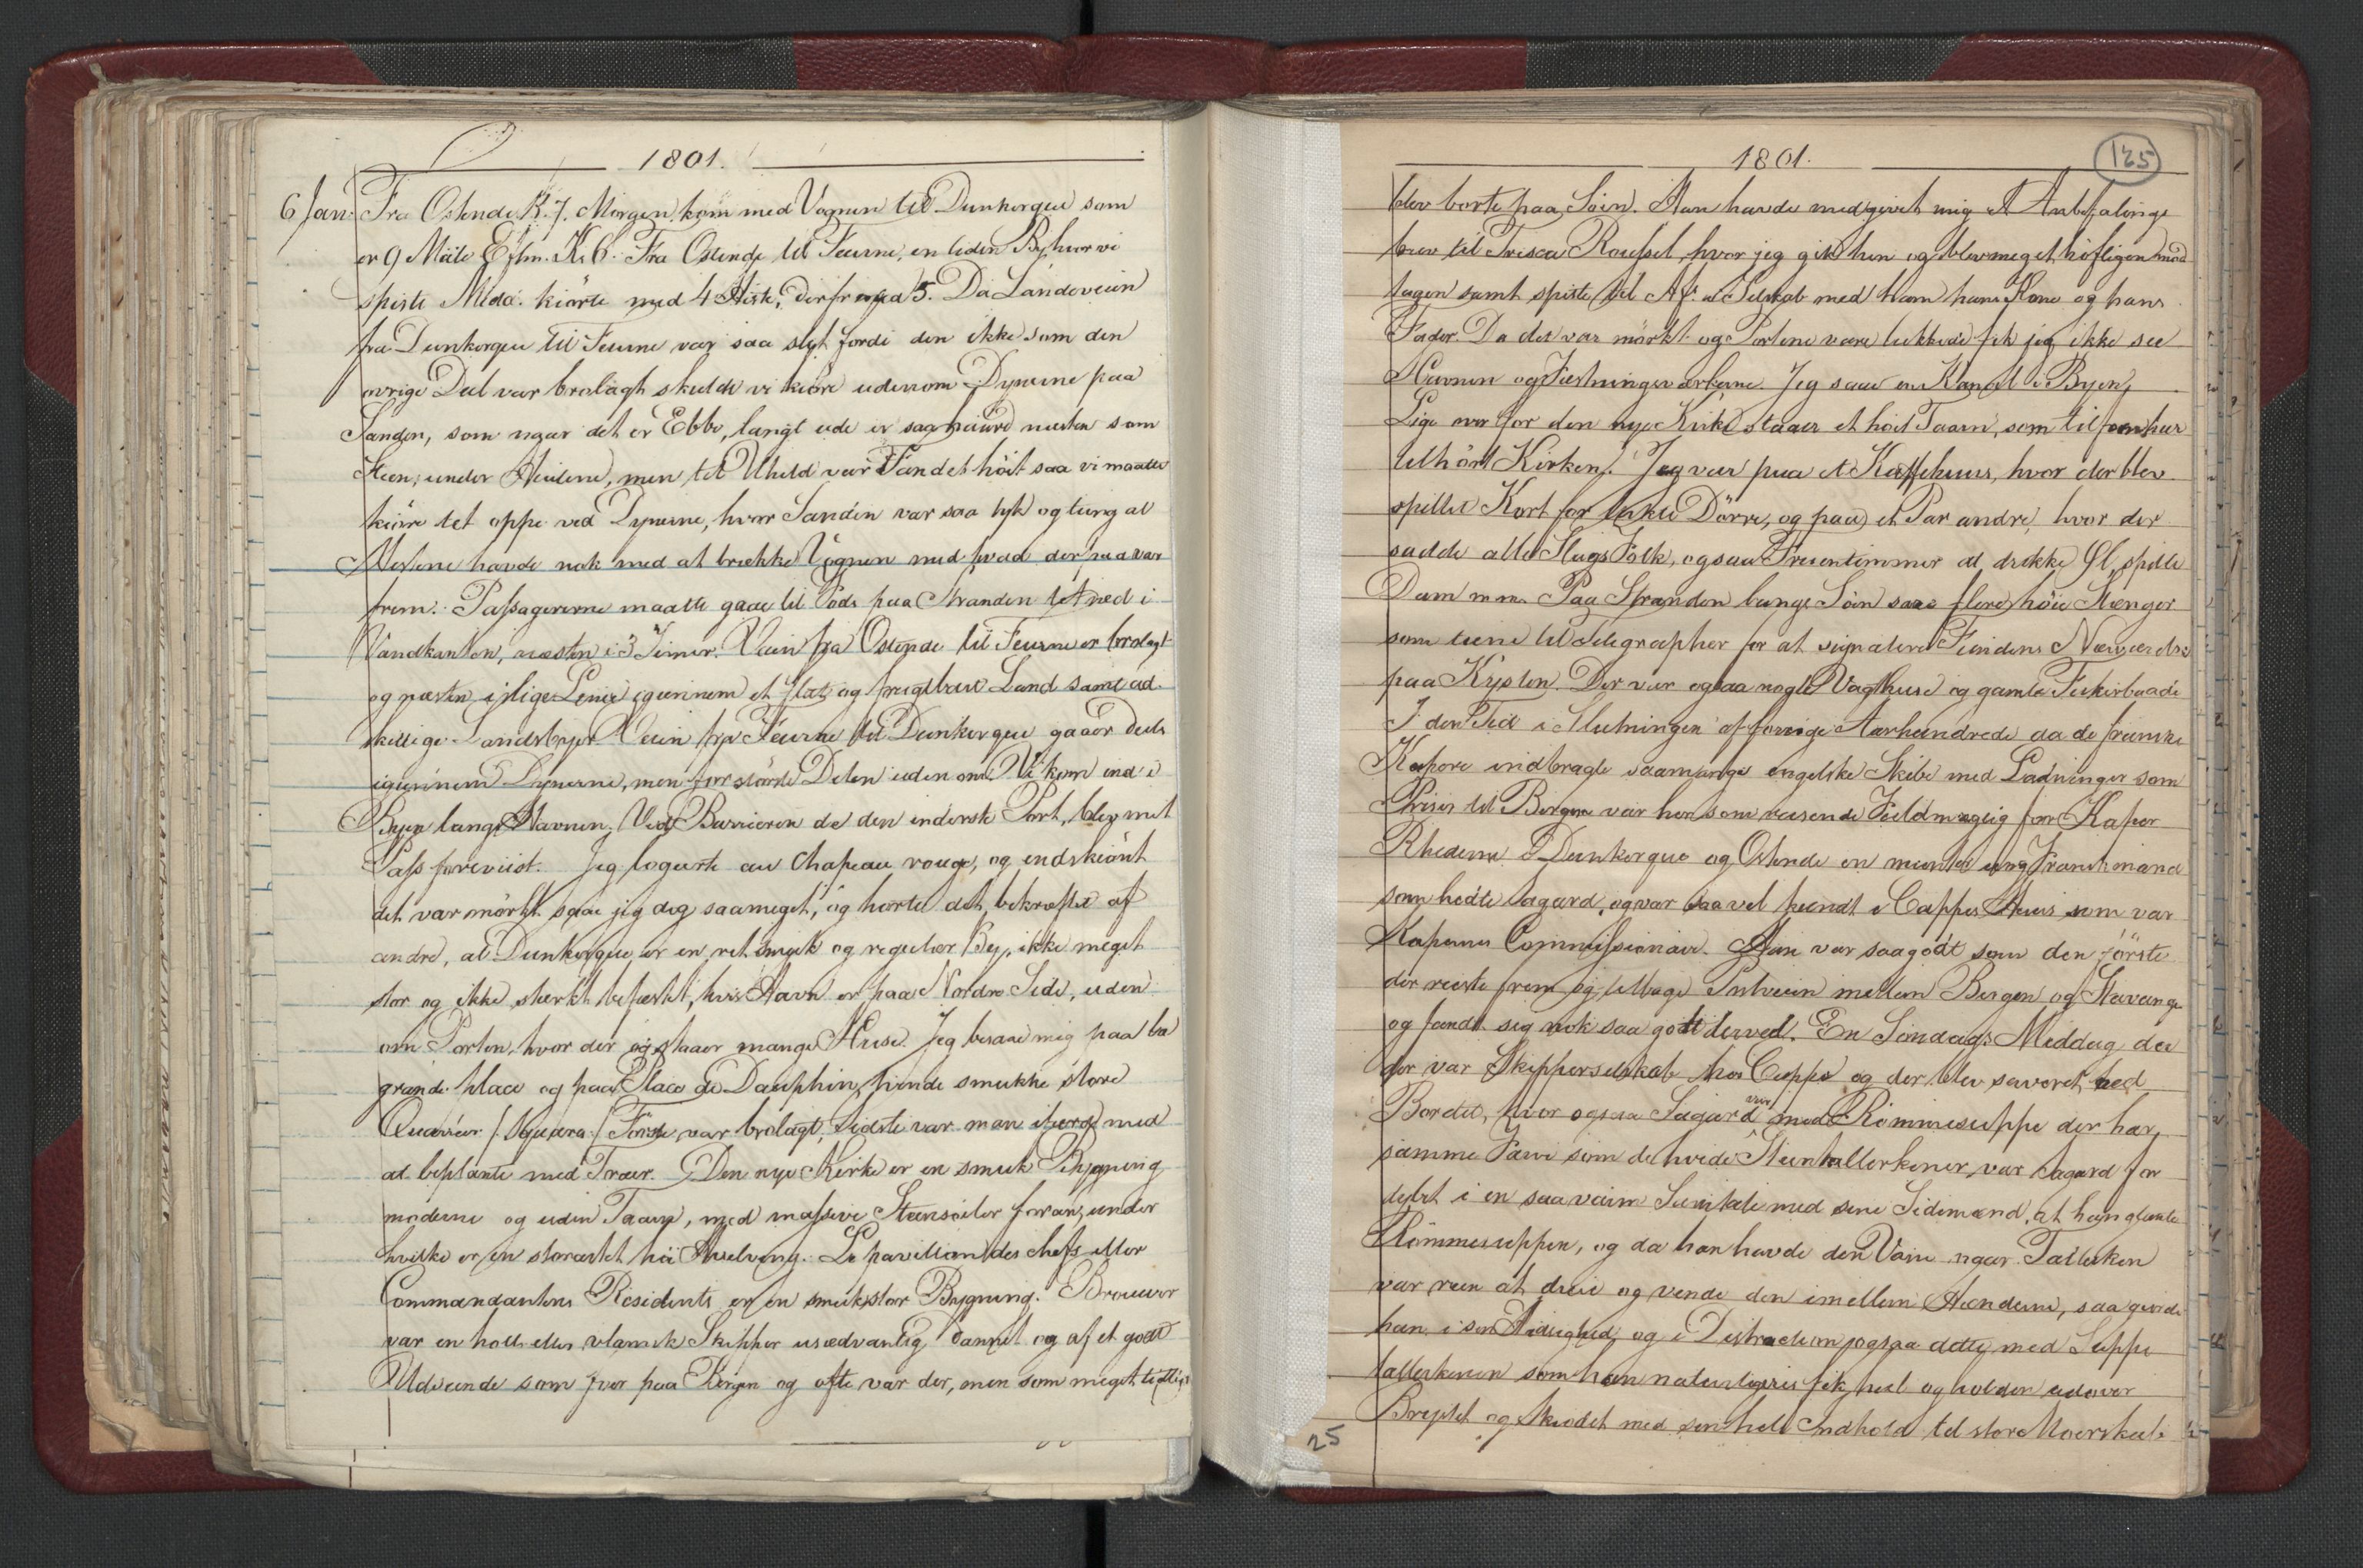 1801.
6 Jan. Fra Ostende K. 7. Morgen, kom med Vognen til Dunkerque som
er 9 Mile Eftm. K. 6. Fra Ostende til Feurne, en liden By hvor vi
spiste Midd. kiörte med 4 Heste, derfra med 5. Da Landeveien
fra Dunkerque til Feurne var saa slet fordi den ikke som den
övrige Deel var brolagt skulde vi kiöre udenom Dynerne paa
Sanden, som naar det er Ebbe, langt ude er saa haard næsten som
Steen, under Hiulene, men til Uheld var Vandet höit saa vi maatte
kiöre tet oppe ved Dynerne, hvor Sanden var saa tyk og tung at
Hestene havde nok med at trække Vognen med hvad derpaa var
frem. Passagererne maatte gaae til Fods paa Stranden tet ned i
Vandkanten, næsten i 3 Timer. Veien fra Ostende til Feurne er brolagt
og næsten i lige Linie igiennem et flat og frugtbart Land samt ad
skillige Landsbyer. Veien fra Feurne til Dunkerque gaaer deels
igiennem Dynerne, men for störste Delen uden om. Vi kom ind i
Byen langs Havnen. Ved Barrieren da den inderste Port, blev mit
Pass foreviist. Jeg logerte au Chapeau rouge, og endskiönt
det var mörkt saae jeg dog saameget, og hörte det bekræftet af
andre, at Dunkerque er en ret smuk og regulær By, ikke meget
stor og ikke stærkt befæstet, hvis Havn er paa Nordre Side, uden
om Porten, hvor der og staaer mange Huse. Jeg besaae mig paa la
grande place og paa Place de Dauphin, hvide smukke store
Quarréer /: Squara :/ Förste var brolagt, sidste var man ifærd med
at beplante med Træer. Den nye Kirke er en smuk Bygning
moderne og uden Taarn, med massive Steensöiler foran, under
hvilke er en storartet høi Hvelving. Le pavillion des chefs eller
Commandantens Residents er en smuk stor Bygning. Brouwer
var en holl. eller vlamsk Skipper usædvanlig dannet og af et godt
Udseende som foer paa Bergen og ofte var der, men som meget tidlig
1801.
125
blev borte paa Söen. Han havde medgivet mig et Anbefalings
brev til Tresca Roussel, hvor jeg gik hen og blev meget höfligen mod
tagen samt spiste til Af. i Selskab med ham hans Kone og hans
Fader. Da det var mörkt og Portene vare lukkede fik jeg ikke see
Havnen og Fæstningsværkerne. Jeg saae en Kanal i Byen,
Lige over for den nye Kirke staaer et höit Taarn, som tilforn har
tilhört Kirken. Jeg var paa et Kaffehuus, hvor der blev
spillet Kort for lukte Dörre, og paa et Par andre, hvor der
sadde alle Slags Folk, ogsaa Fruentimmer at drikke Öl, spille
Dam m.m. Paa Stranden langs Söen saaes flere höie Stænger
som tiene til Telegrapher for at signalere Fiendens Nærværelse
paa Kysten. Der var ogsaa nogle Vagthuse og gamle Fiskerbaade
I den Tid i Slutningen af forrige Aarhundrede da de franske
Kapere indbragte saamange engelske Skibe med Ladninger som
Priser til Bergen var her som reisende Fuldmægtig for Kaper
Rhederne i Dunkerque og Ostende en munter ung Franskmand
som hedte Sagard, og var saa vel kiendt i Cappes Huus som var
Kapernes Commissionair. Han var saagodt som den förste
der reiste frem og tilbage Postveien mellem Bergen og Stavange
og fandt sig nok saa godt derved. En Söndags Middag da
der var Skipperselskab hos Cappe og der blev saveret ved
Bordet, hvor ogsaa Sagard var, med Römmesuppe der har
samme Farve som de hvide Steentallerkener, var Sagard for
dybt i en saa varm Samtale med sine Sidemænd, at han glemte
Römmesuppen, og da han havde den Vane naar Tallerken
var reen at dreie og vende den imellem Hænderne, saa giorde
han i sin Ivrighed og i Distraction ogsaa dette med Suppe
tallerkenen som han naturligviis fik heel og holden udover
Brystet og Skiödet med sin hele Indhold til store Moerskab.
25